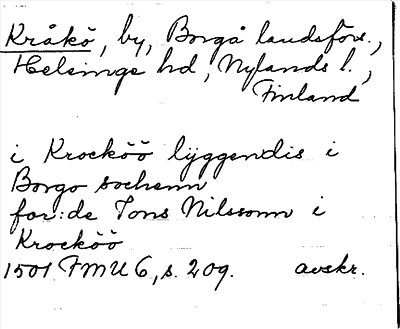 Kråkö, by, Borgå landsförs.,
Helsinge hd, Nylands l.,
Finland
i Krocköö lÿggendis i
Borgo sochenn
for:de Jons Nilssonn i
Krocköö
1501 FMU 6, s. 209. avskr.